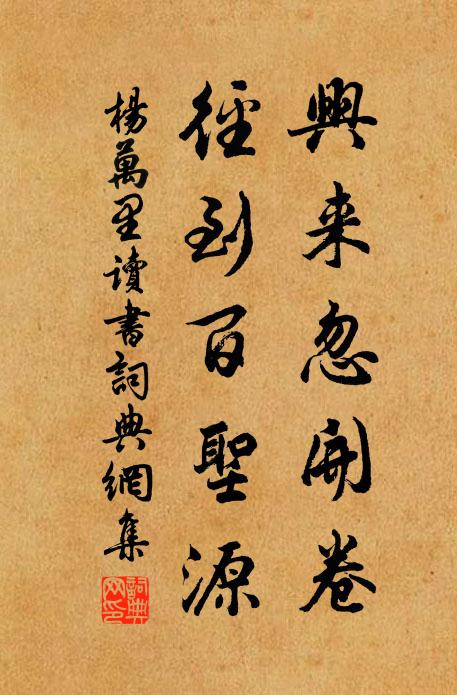 興来忽開卷
徑到百聖源
楊萬里讀書詞典網集
詞典
网印